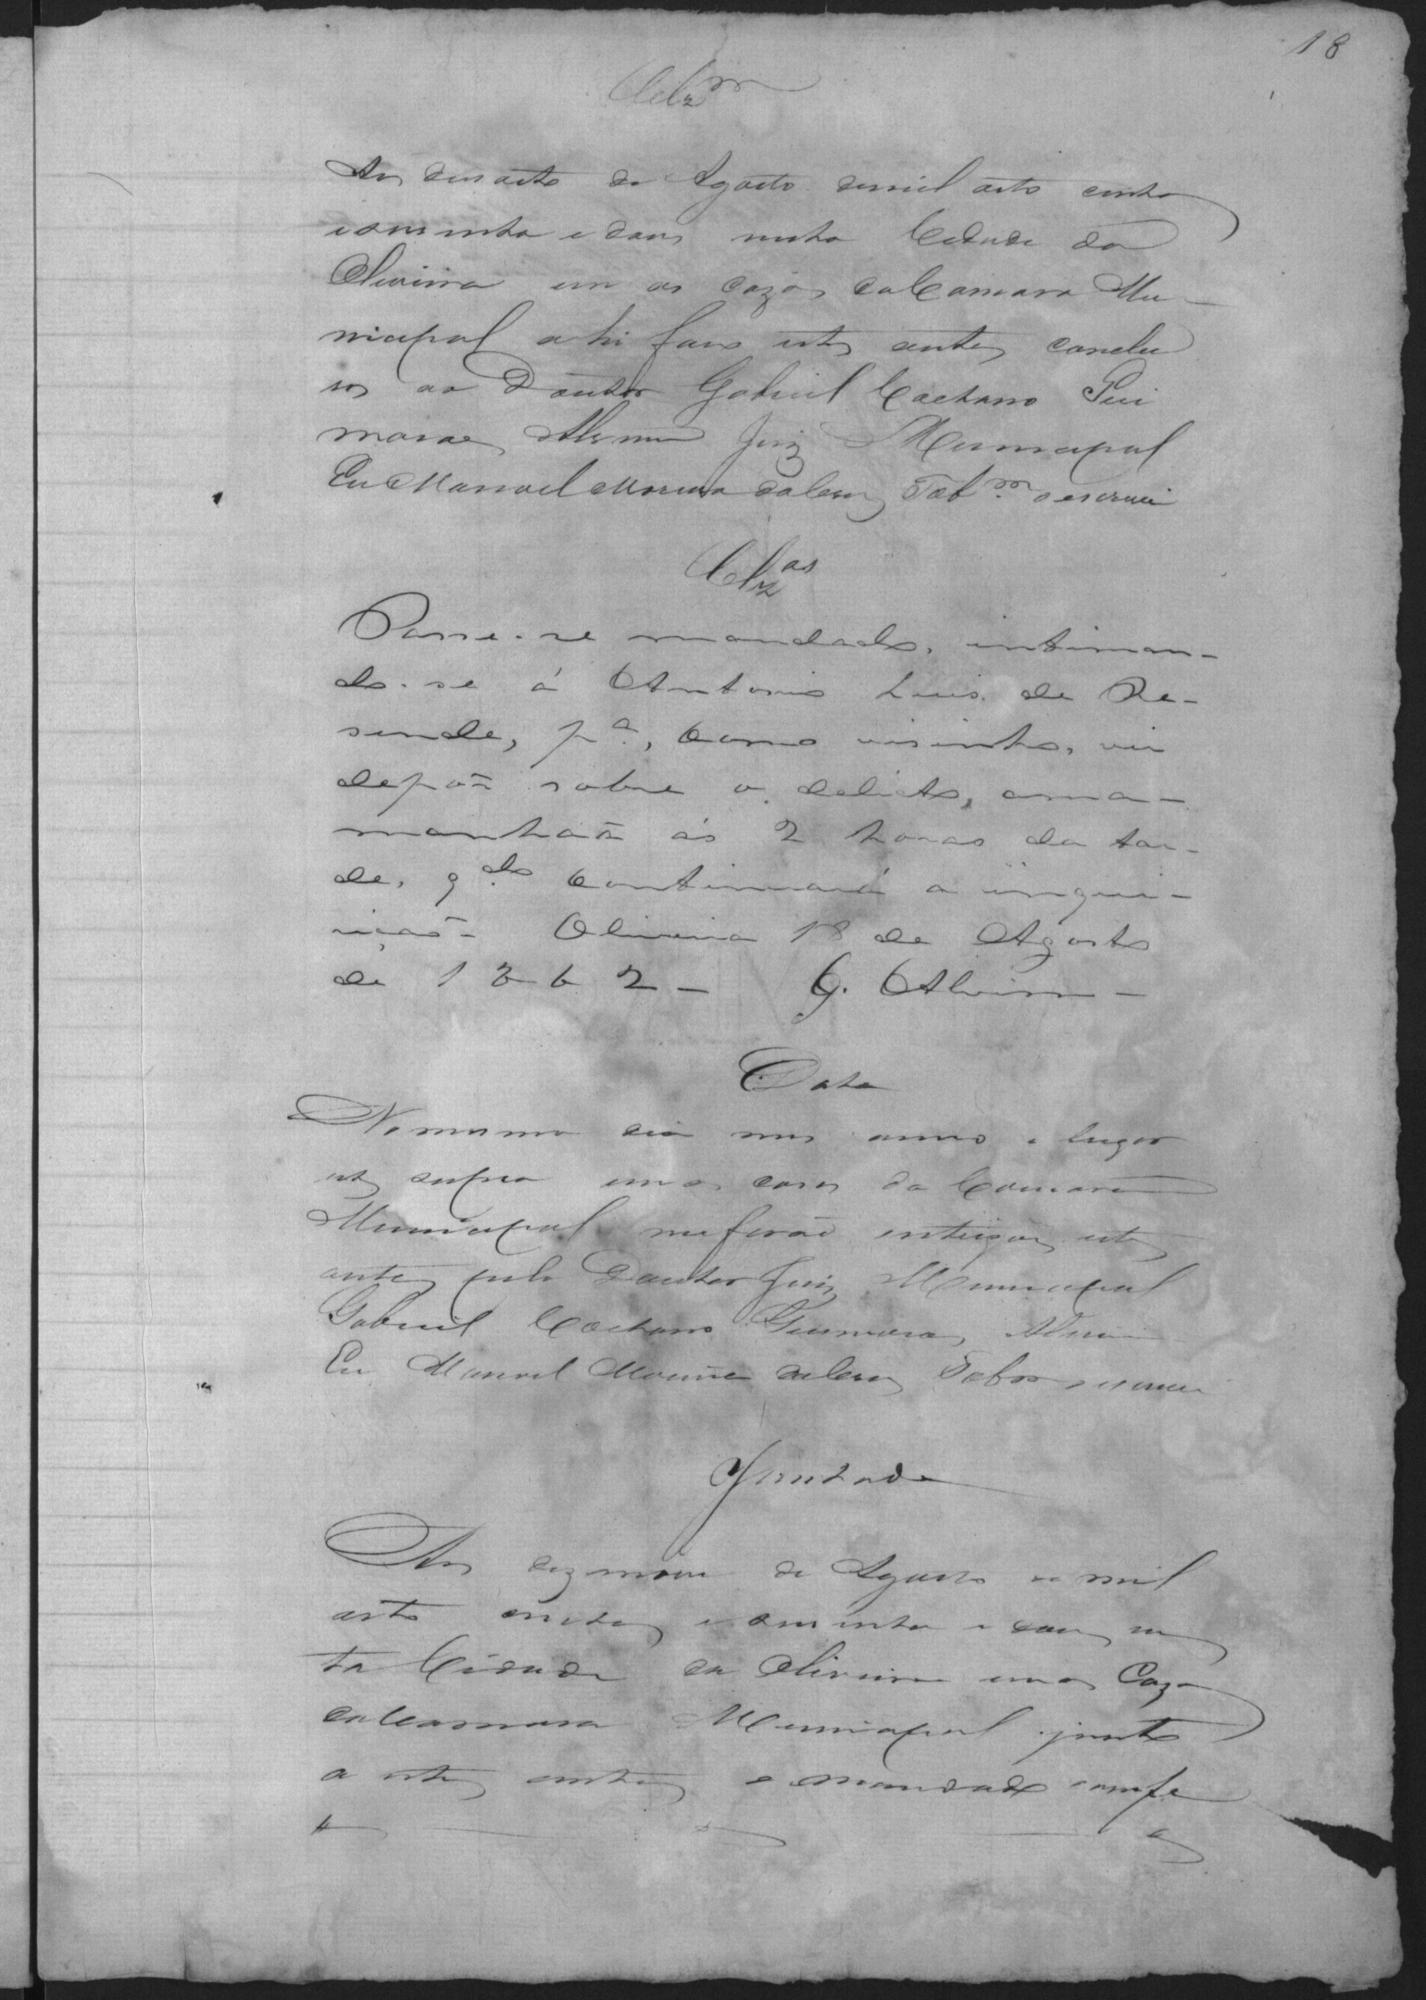 18
Clzm
Aos desoito de Agosto demil oito centos
esaessenta edous nesta Cidade da
Oliveira em as cazas daCamara Mu-
nicipal ahi faço estes autos conclu
sos ao Doutor Gabriel Caetano Gui
maraes Alvim Juiz Municipal
Eu Manoel Moreira Tabm. o escrevi
Clzas
Passe-se mandado, intiman-
do-se á Antonio Luis de Re-
sende, pa., como visinho, vir
depôr sobre o delicto, ama-
manhaã ás 2 horas da tar-
de, qdo. continuará a inqui-
rição- Oliveira 18 de Agosto
de 1862- G. Alvim-
Data
Nomesmo dia mes anno e lugar
ut supra em as casas da Camara
Municipal meforão entregues estes
autos pelo Doutor Juiz Municipal
Gabriel Caetano Guimaraes Alvim
Eu Manoel Moreira Tabm o escrevi
Juntada
Aos deznove de Agosto de mil
oito centos e sessenta e dous nes
ta Cidade da Oliveira em as Cazas
daCamara Municipal junto
a estes autos o mandado comfe